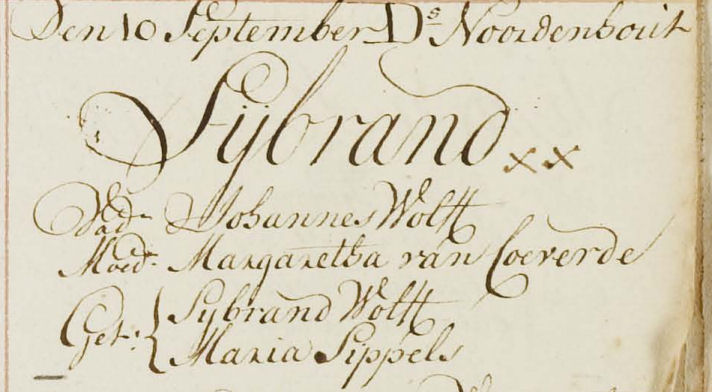 Den 10 September Ds Noordenhout
Sijbrand xx
Vadr Johannes Wolft
Moedr Margaretha van Coeverde
Get: { Sijbrand Wolft
Maria Sippels